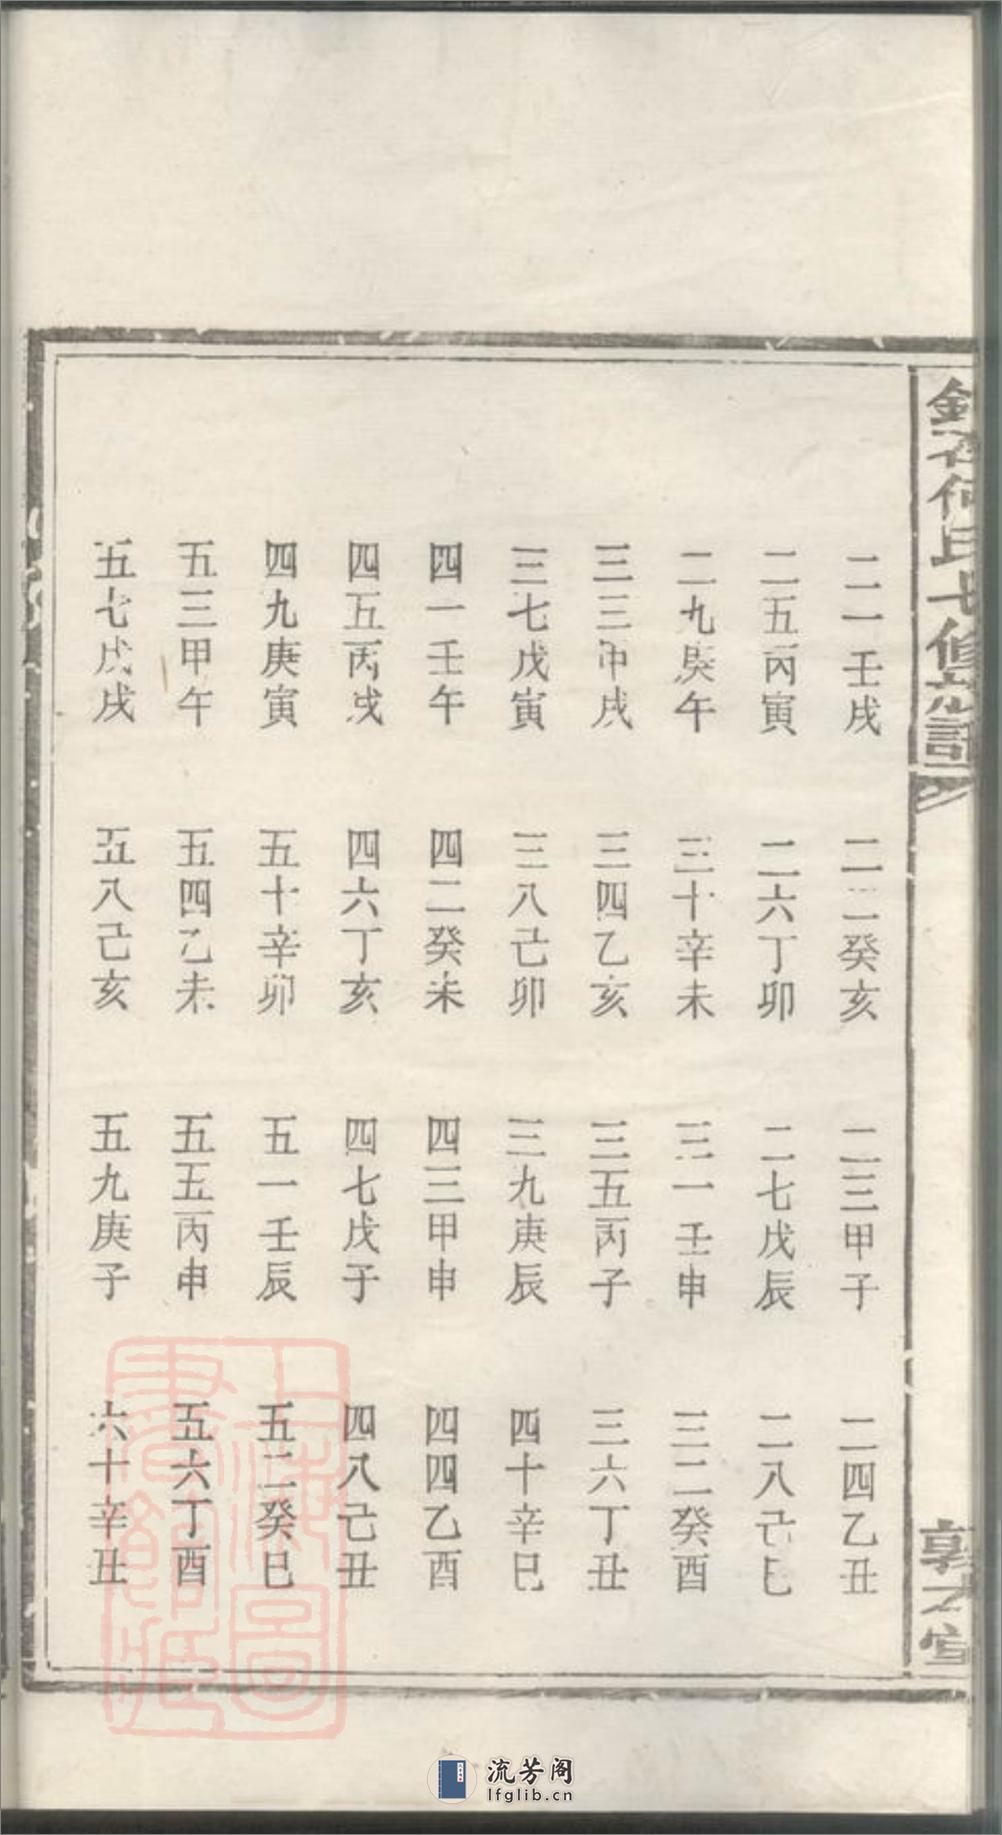 何氏七修宗譜
二一壬戌 二二癸亥 二三甲子 二四乙丑
二五丙寅 二六丁卯 二七戊辰 二八己巳
二九庚午 三十辛未 三一壬申 三二癸酉
三三甲戌 三四乙亥 三五丙子 三六丁丑
三七戊寅 三八己卯 三九庚辰 四十辛巳
四一壬午 四二癸未 四三甲申 四四乙酉
四五丙戌 四六丁亥 四七戊子 四八己丑
四九庚寅 五十辛卯 五一壬辰 五二癸巳
五三甲午 五四乙未 五五丙申 五六丁酉
五七戊戌 五八己亥 五九庚子 六十辛丑
上海圖
書館藏
流芳阁
lfglib.cn